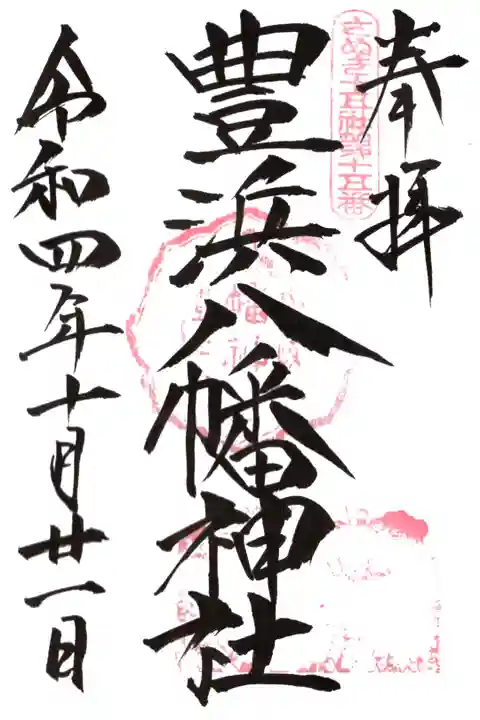 奉拝
さぬき十五社詣第十五番
豊浜八幡神社
令和四年十月廿一日